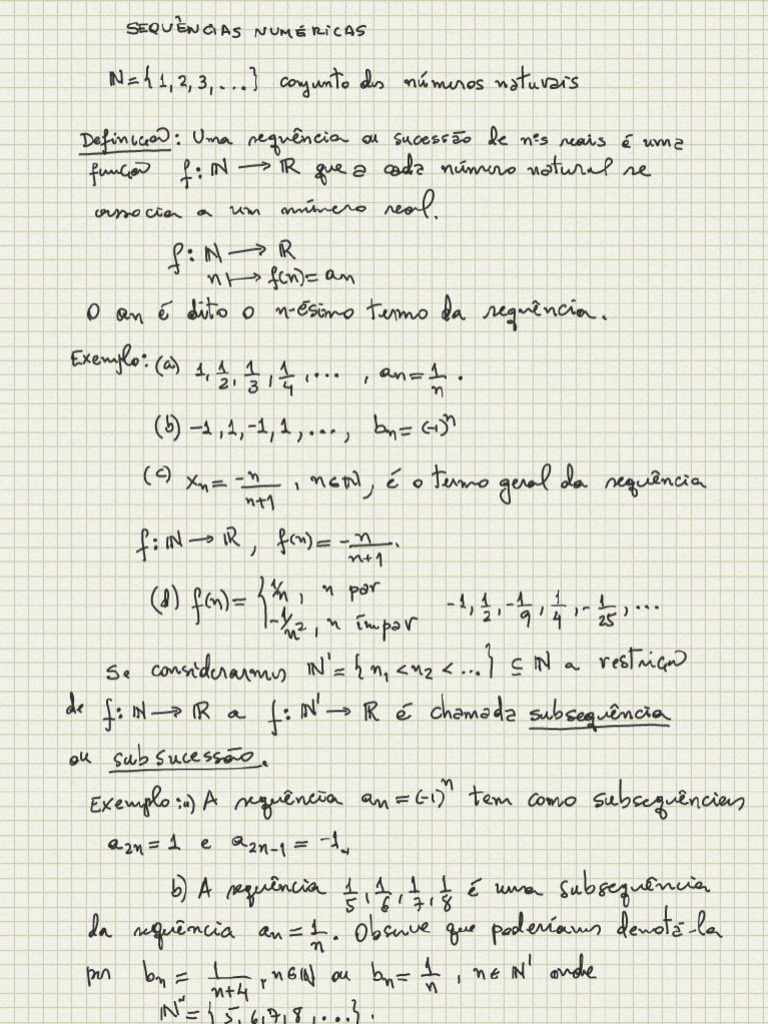 SEQUÊNCIAS NUMÉRICAS
ℕ = {1, 2, 3, ...} conjunto dos números naturais
Definição: Uma sequência ou sucessão de nºs reais é uma
função f: ℕ → ℝ que a cada número natural se
associa a um número real.
f: ℕ → ℝ
n ↦ f(n) = an
O an é dito o n-ésimo termo da sequência.
Exemplo: (a) 1, 1/2, 1/3, 1/4, ... , an = 1/n.
(b) -1, 1, -1, 1, ..., bn = (-1)^n
(c) xn = -n/(n+1), n∈ℕ, é o termo geral da sequência
f: ℕ → ℝ, f(n) = -n/(n+1).
(d) f(n) = { 1/n, n par
-1/n², n ímpar -1, 1/2, -1/9, 1/4, -1/25, ...
Se considerarmos ℕ' = {n₁ < n₂ < ...} ⊆ ℕ a restrição
de f: ℕ → ℝ a f: ℕ' → ℝ é chamada subsequência
ou subsucessão.
Exemplo: a) A sequência an = (-1)^n tem como subsequências
a₂ₙ = 1 e a₂ₙ₋₁ = -1.
b) A sequência 1/5, 1/6, 1/7, 1/8 é uma subsequência
da sequência an = 1/n. Observe que poderíamos denotá-la
por bn = 1/(n+4), n∈ℕ ou bn = 1/n, n∈ℕ' onde
ℕ' = {5, 6, 7, 8, ...}.